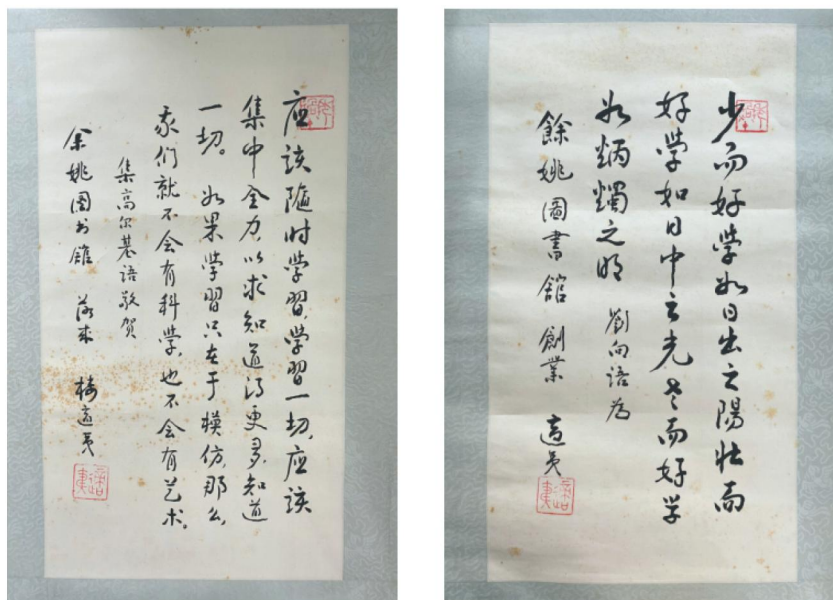 应该随时学習，学習一切，应该
集中全力，以求知道得更多，知道
一切。如果学習只在于模仿，那么，
我们就不会有科学，也不会有艺术。
集高尔基语敬贺
余姚图书館 落成 楼適夷
少而好学如日出之陽壮而
好学如日中之光老而好学
如炳燭之明 劉向語为
餘姚圖書館創業 適夷